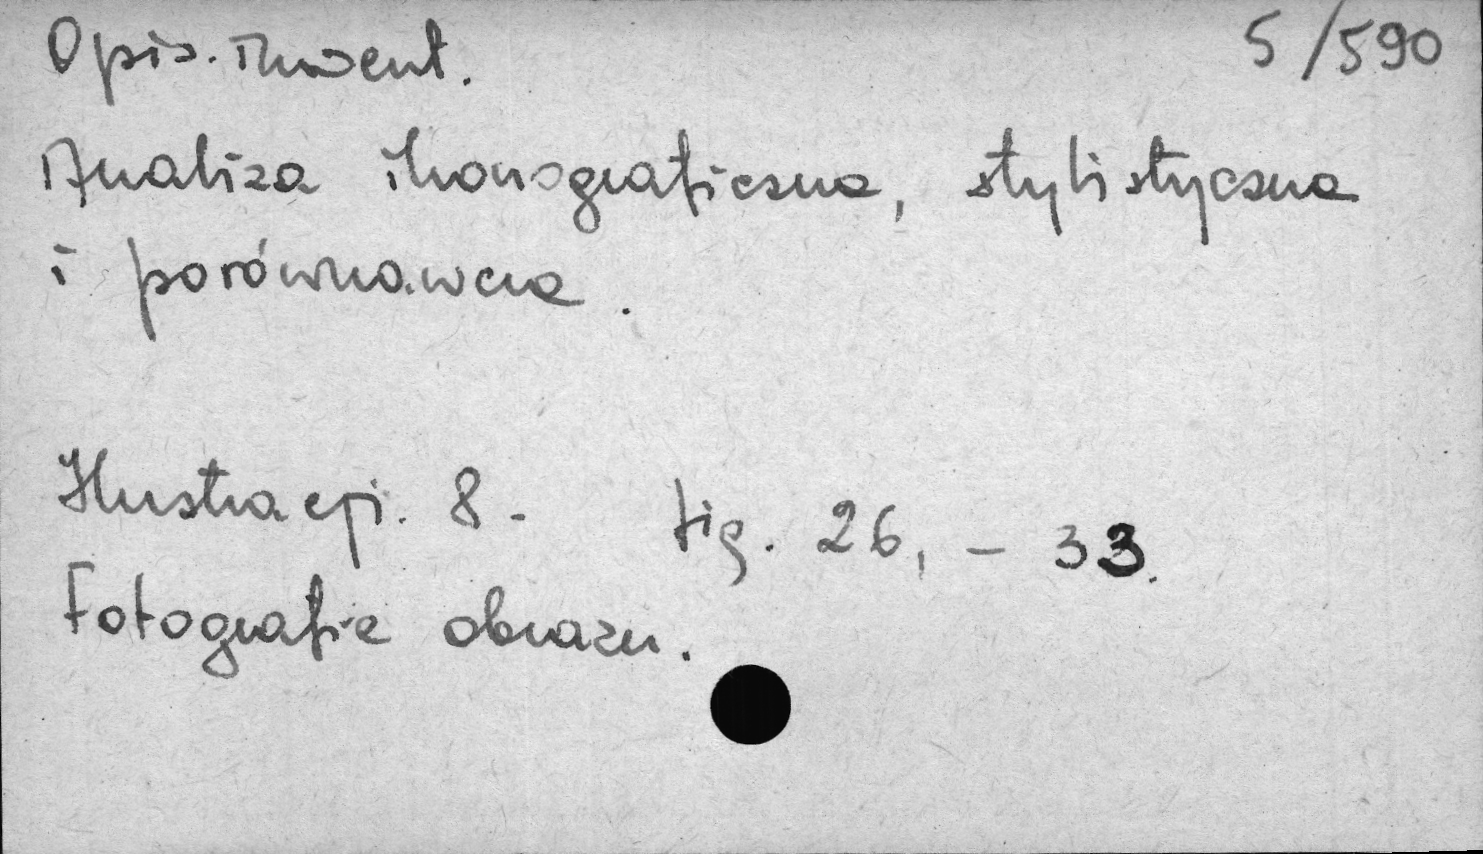 Opis. inwent. 5/590
Analiza ikonograficzna, stylistyczna
i porównawcza.
Ilustracji. 8 - fig. 26, - 33.
Fotografie obrazu.